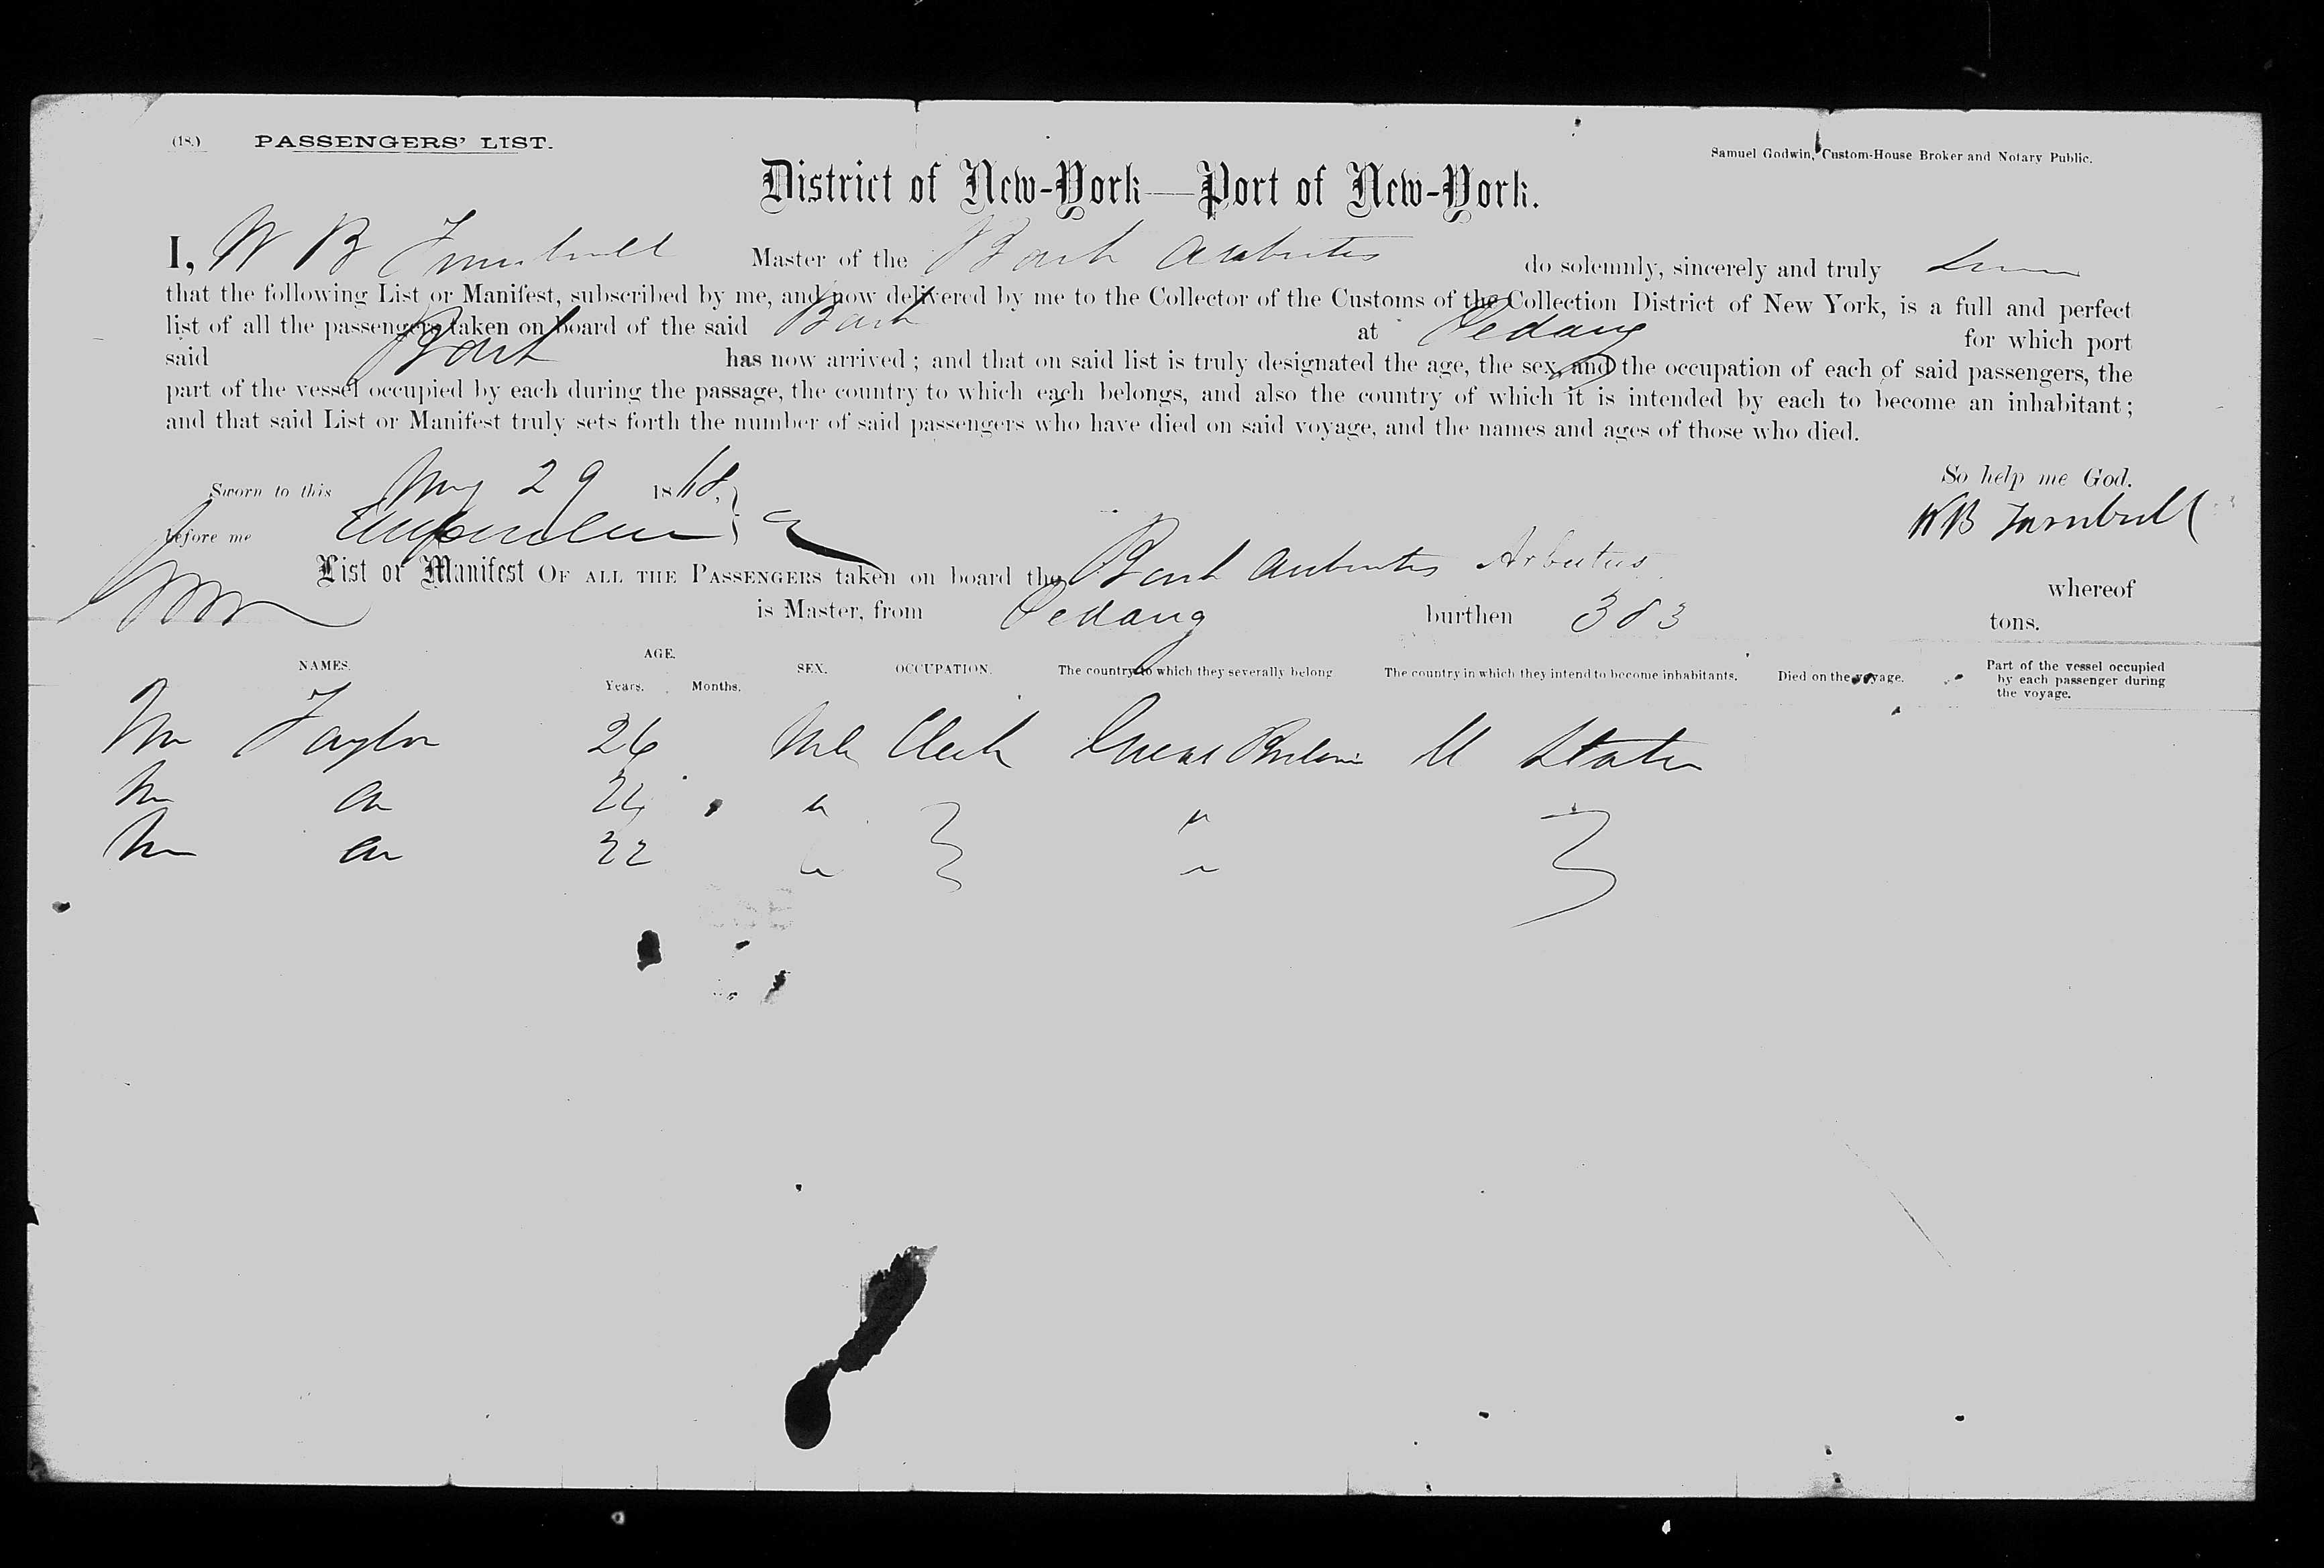 (18.) PASSENGERS' LIST.
Samuel Godwin, Custom-House Broker and Notary Public.
District of New-York—Port of New-York.
I, W B Turnbull Master of the Bark Arbutus do solemnly, sincerely and truly Swear
that the following List or Manifest, subscribed by me, and now delivered by me to the Collector of the Customs of the Collection District of New York, is a full and perfect
list of all the passengers taken on board of the said Bark at Pedang for which port
said Bark has now arrived; and that on said list is truly designated the age, the sex, and the occupation of each of said passengers, the
part of the vessel occupied by each during the passage, the country to which each belongs, and also the country of which it is intended by each to become an inhabitant;
and that said List or Manifest truly sets forth the number of said passengers who have died on said voyage, and the names and ages of those who died.
So help me God.
Sworn to this May 29 1868.
WB Turnbull
before me
List or Manifest OF ALL THE PASSENGERS taken on board the Bark Arbutus Arbutus whereof
is Master, from Pedang burthen 383 tons.
NAMES. AGE. Years. Months. SEX. OCCUPATION. The country to which they severally belong The country in which they intend to become inhabitants. Died on the voyage. Part of the vessel occupied by each passenger during the voyage.
Mr Taylor 26 Male Clerk Great Britain U States
22